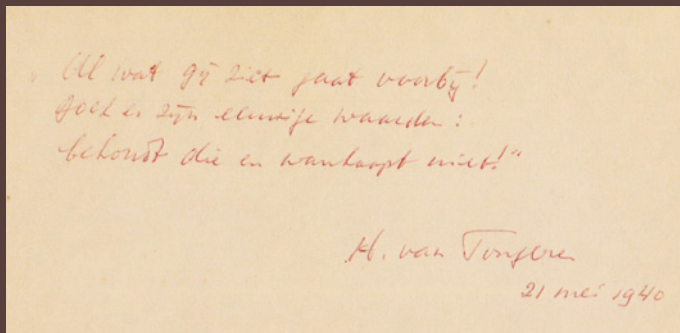 „Al wat gij ziet gaat voorbij!
Doch er zijn eeuwige waarden:
behoudt die en wanhoopt niet!"
H. van Tongeren
21 mei 1940